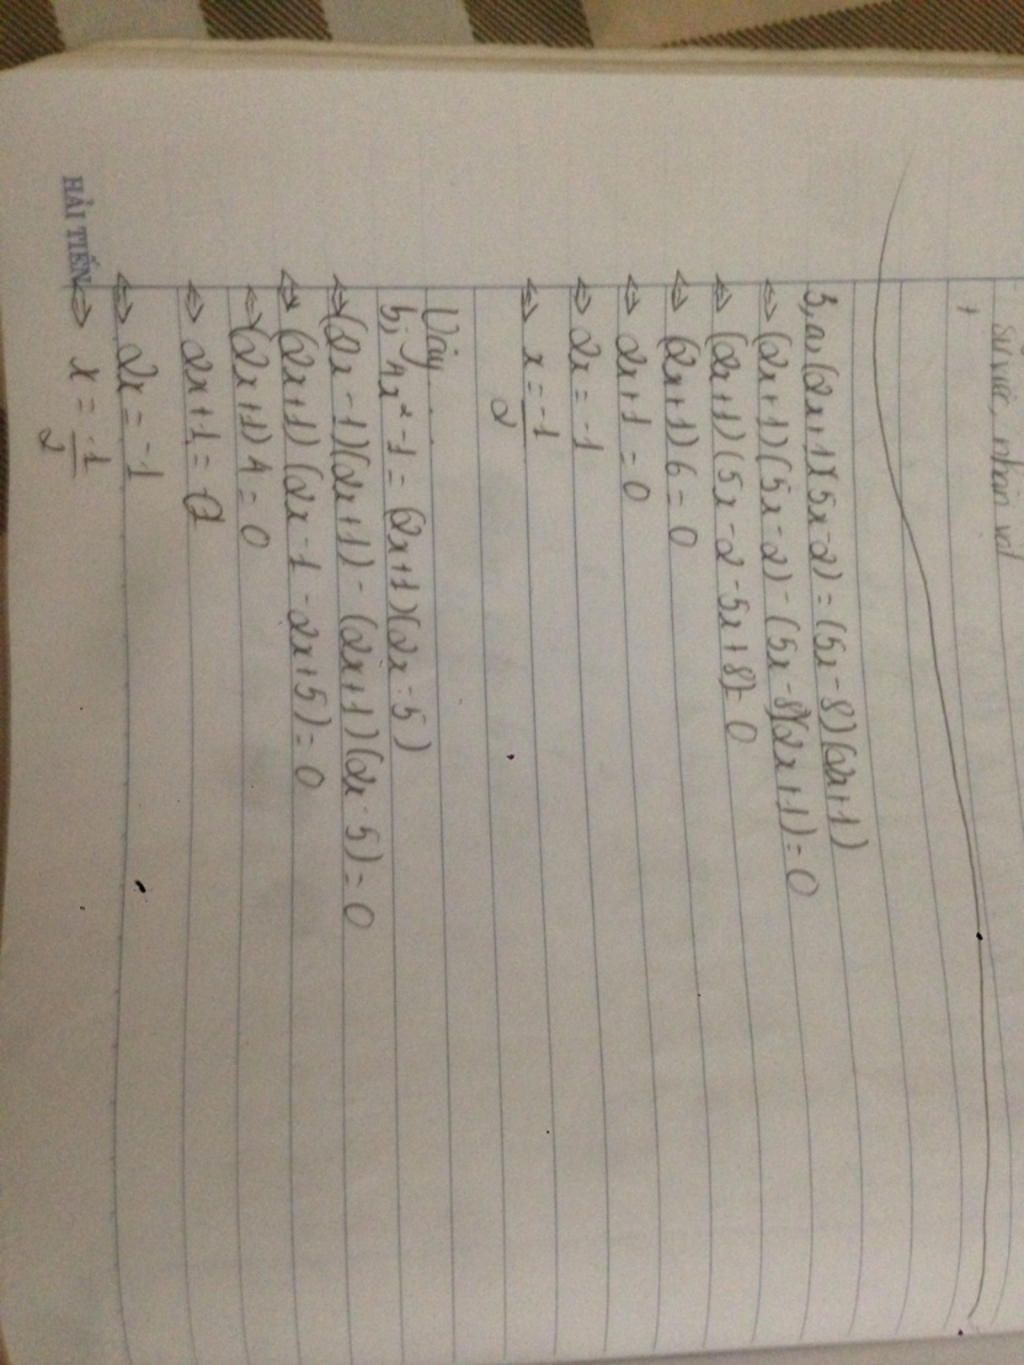 sự việc, nhân vật
+
3, a, (2x+1)(5x-2) = (5x-8)(2x+1)
⇔ (2x+1)(5x-2) - (5x-8)(2x+1) = 0
⇔ (2x+1)(5x-2-5x+8) = 0
⇔ (2x+1)6 = 0
⇔ 2x+1 = 0
⇔ 2x = -1
⇔ x = -1/2
Vậy...
b, 4x² - 1 = (2x+1)(2x-5)
⇔ (2x-1)(2x+1) - (2x+1)(2x-5) = 0
⇔ (2x+1)(2x-1-2x+5) = 0
⇔ (2x+1)4 = 0
⇔ 2x+1 = 0
⇔ 2x = -1
⇔ x = -1/2
HẢI TIẾN